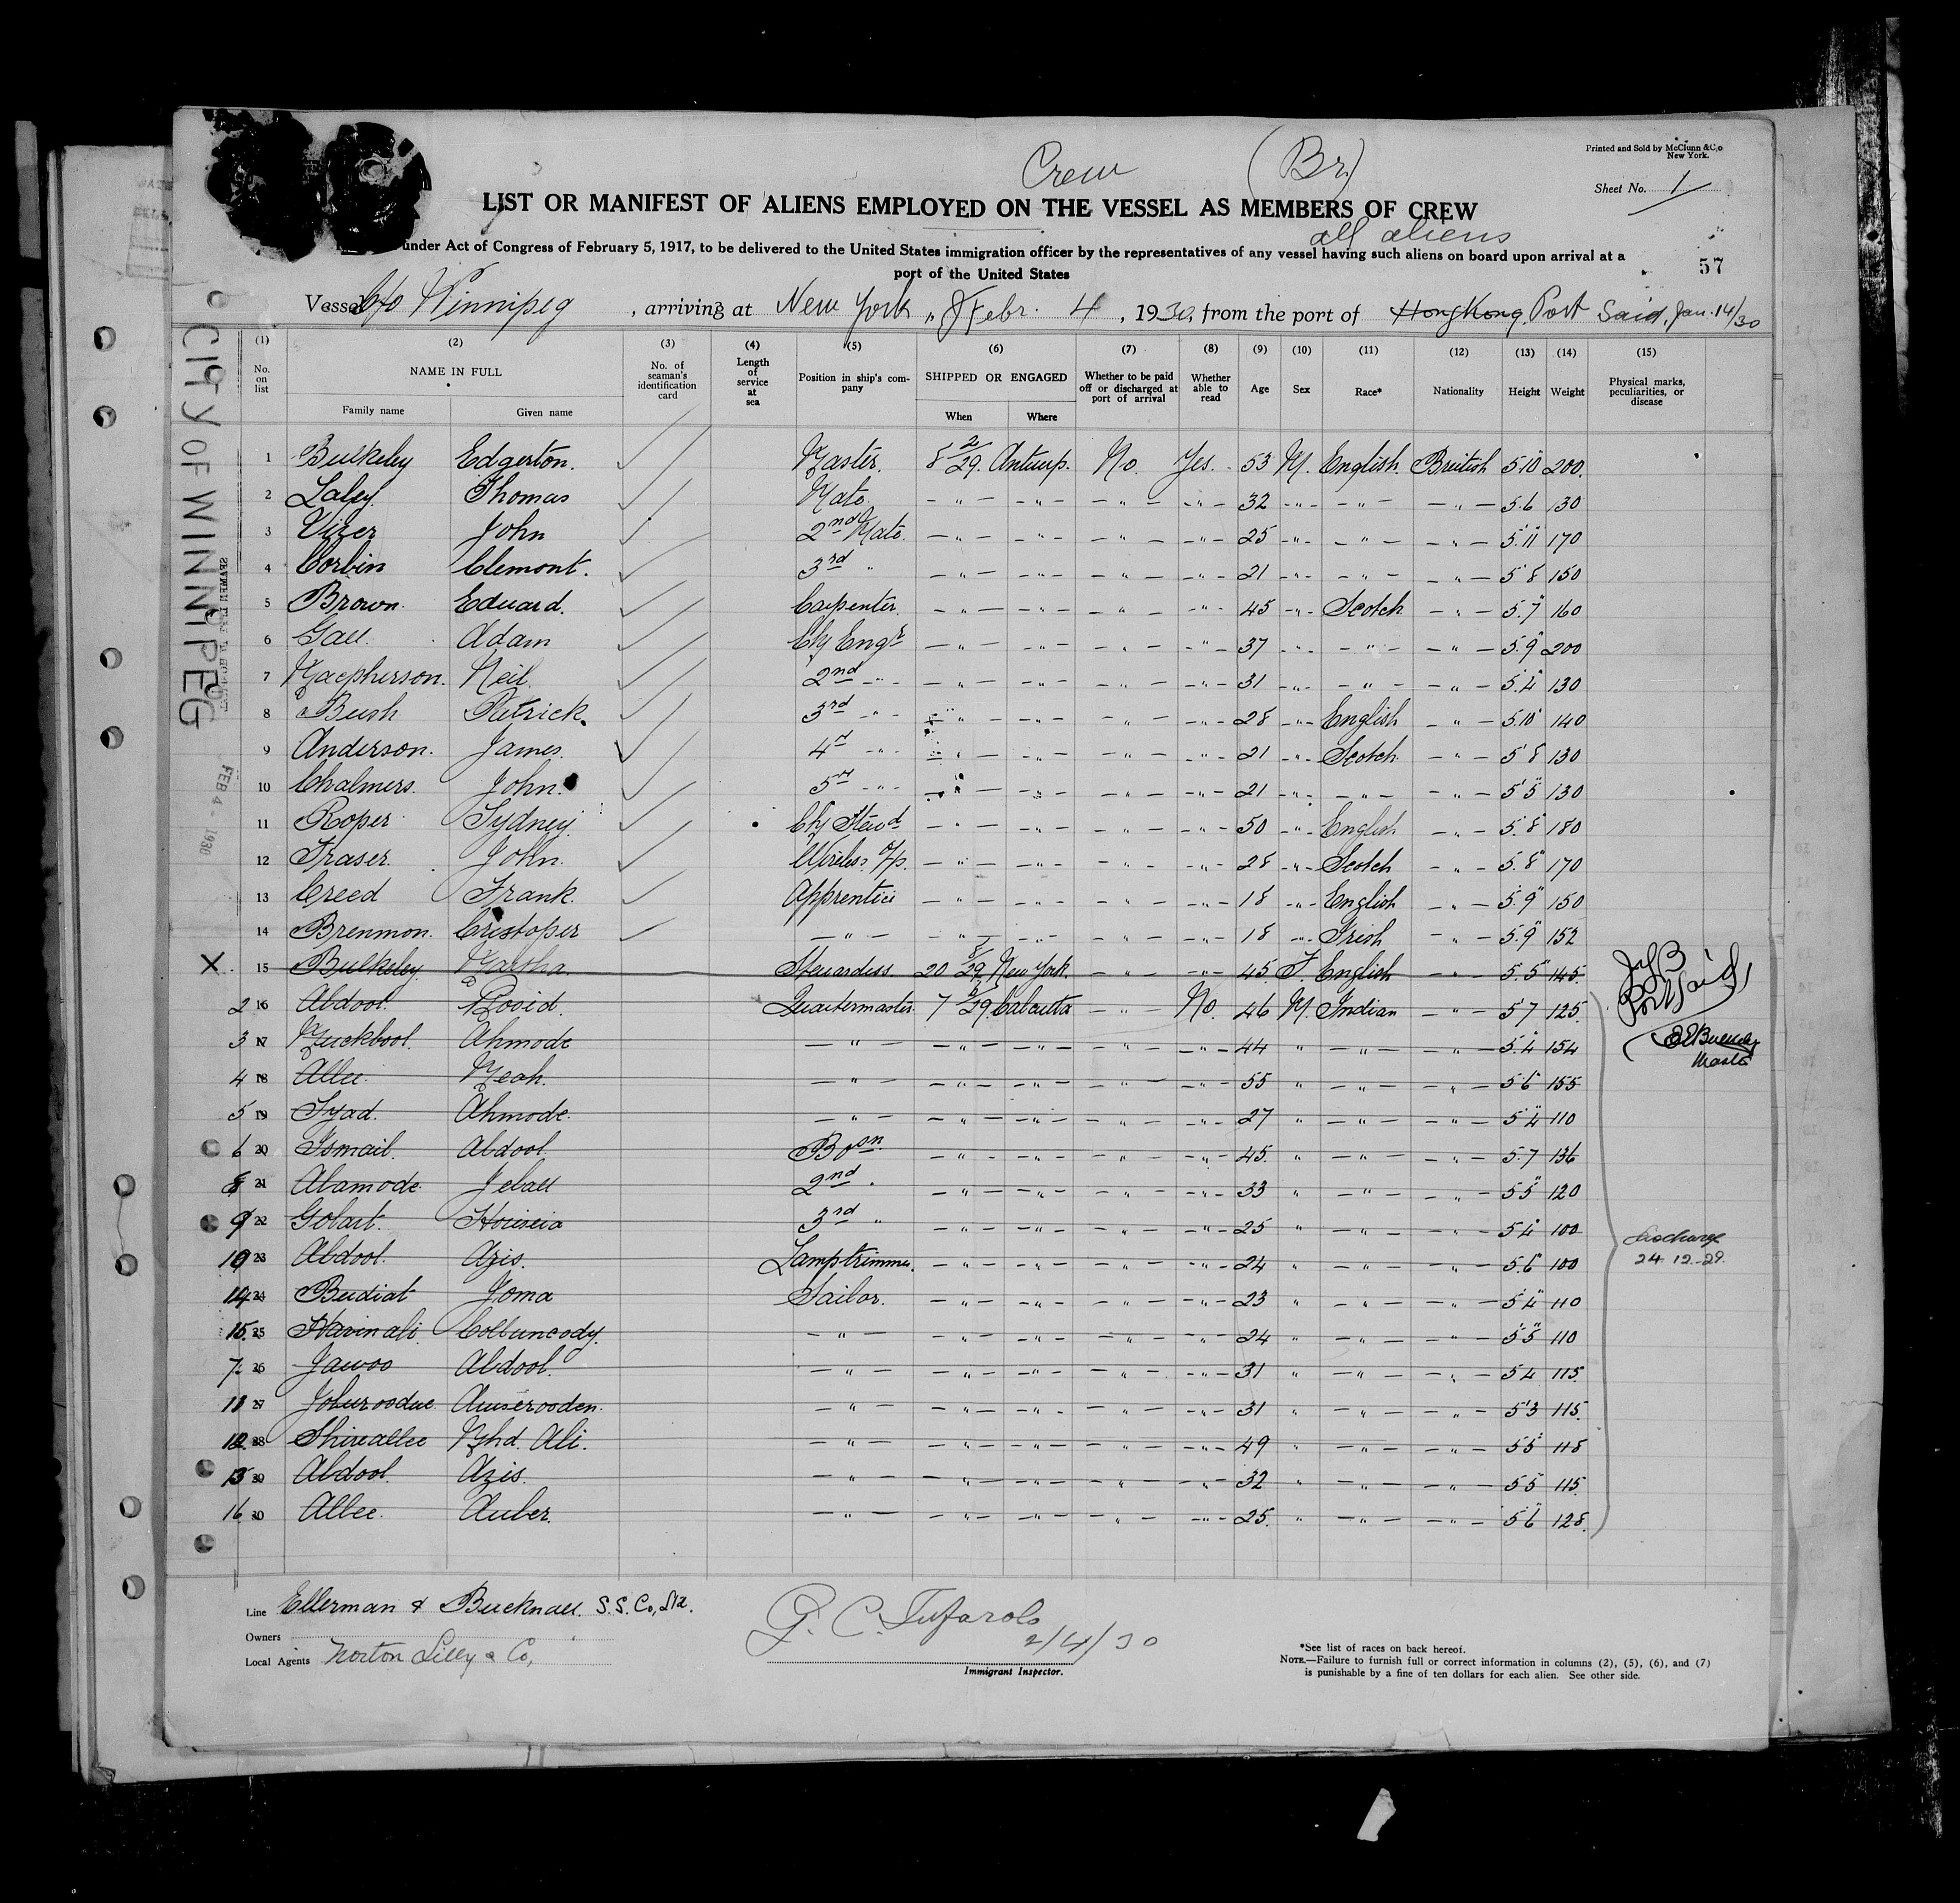 Crew (Br)
Printed and Sold by McClunn & Co
New York.
Sheet No. 1
LIST OR MANIFEST OF ALIENS EMPLOYED ON THE VESSEL AS MEMBERS OF CREW
all aliens
under Act of Congress of February 5, 1917, to be delivered to the United States immigration officer by the representatives of any vessel having such aliens on board upon arrival at a
port of the United States
57
Vessel C/o Winnipeg, arriving at New York, Febr. 4, 1930, from the port of HongKong, Port Said, Jan. 14/30
CITY OF WINNIPEG
FEB 4 - 1930
(1) (2) (3) (4) (5) (6) (7) (8) (9) (10) (11) (12) (13) (14) (15)
No. on list NAME IN FULL No. of seaman's identification card Length of service at sea Position in ship's company SHIPPED OR ENGAGED Whether to be paid off or discharged at port of arrival Whether able to read Age Sex Race* Nationality Height Weight Physical marks, peculiarities, or disease
Family name Given name When Where
1 Bulkeley Edgerton. Master. 8 2/29. Antwerp. No. Yes. 53 M. English British 5.10 200.
2 Laley. Thomas Mate. — " — — " — — " — — " — 32 — " — — " — — " — 5.6 130
3 Vizer John 2nd Mate. — " — — " — — " — — " — 25 — " — — " — — " — 5.11 170
4 Corbin Clemont. 3rd " — " — — " — — " — — " — 21 — " — — " — — " — 5.8 150
5 Brown. Edward. Carpenter. — " — — " — — " — — " — 45 — " — Scotch — " — 5.7 160
6 Gall. Adam Chf Engr — " — — " — — " — — " — 37 — " — — " — — " — 5.9 200
7 Macpherson. Neil. 2nd — " — — " — — " — — " — — " — 31 — " — — " — — " — 5.4 130
8 Bush Patrick. 3rd — " — — " — — " — — " — — " — 28 — " — English — " — 5.10 140
9 Anderson. James. 4th — " — — " — — " — — " — — " — 21 — " — Scotch — " — 5.8 130
10 Chalmers. John. 5th — " — — " — — " — — " — — " — 21 — " — — " — — " — 5.5 130
11 Roper Sydney. Chf Stewd — " — — " — — " — — " — 50 — " — English — " — 5.8 180
12 Fraser. John. Wireless O/p. — " — — " — — " — — " — 28 — " — Scotch — " — 5.8 170
13 Creed Frank. Apprentice — " — — " — — " — — " — 18 — " — English — " — 5.9 150
14 Brenmon. Cristoper — " — — " — — " — — " — — " — 18 — " — Irish — " — 5.9 152
X 15 Bulkeley. Martha. Stewardess 20 8/29 New York. — " — — " — 45. F. English — " — 5.5 145.
2 16 Abdool. Rosid. Quartermaster. 7 6/29. Calcutta — " — No. 46 M. Indian — " — 5.7 125.
3 17 Muckbool. Ahmode — " — — " — — " — — " — — " — 44 " — " — — " — 5.4 154
4 18 Allee. Meah. — " — — " — — " — — " — — " — 55 " — " — — " — 5.6 155
5 19 Syad. Ahmode. — " — — " — — " — — " — — " — 27 " — " — — " — 5.4 110
6 20 Ismail. Abdool. Bosn. — " — — " — — " — — " — 45. " — " — — " — 5.7 136
8 21 Abamode Jeball 2nd " — " — — " — — " — — " — 33 " — " — — " — 5.5 120
9 22 Golart. 3rd " — " — — " — — " — — " — 25 " — " — — " — 5.4 100
10 23 Abdool. Azis. Lamptrimmer. — " — — " — — " — — " — 24 " — " — — " — 5.6 100
14 24 Budiat Joma Sailor. — " — — " — — " — — " — 23 " — " — — " — 5.4 110
15 25 — " — — " — — " — — " — — " — 24 " — " — — " — 5.5 110
7 26 Jawoo Abdool. — " — — " — — " — — " — — " — 31 " — " — — " — 5.4 115.
11 27 — " — — " — — " — — " — — " — 31 " — " — — " — 5.3 115.
12 28 Shireallee Mhd. Ali. — " — — " — — " — — " — — " — 49 " — " — — " — 5.5 118
13 29 Abdool Azis. — " — — " — — " — — " — — " — 32 " — " — — " — 5.5 115
16 30 Allee. Auber. — " — — " — — " — — " — — " — 25. " — " — — " — 5.6 128.
Port Said
Master
Discharge
24.12.29.
Line Ellerman & Bucknall S.S. Co., Ltd.
Owners
Local Agents Norton Lilly & Co,
2/4/30
Immigrant Inspector.
*See list of races on back hereof.
NOTE.—Failure to furnish full or correct information in columns (2), (5), (6), and (7)
is punishable by a fine of ten dollars for each alien. See other side.